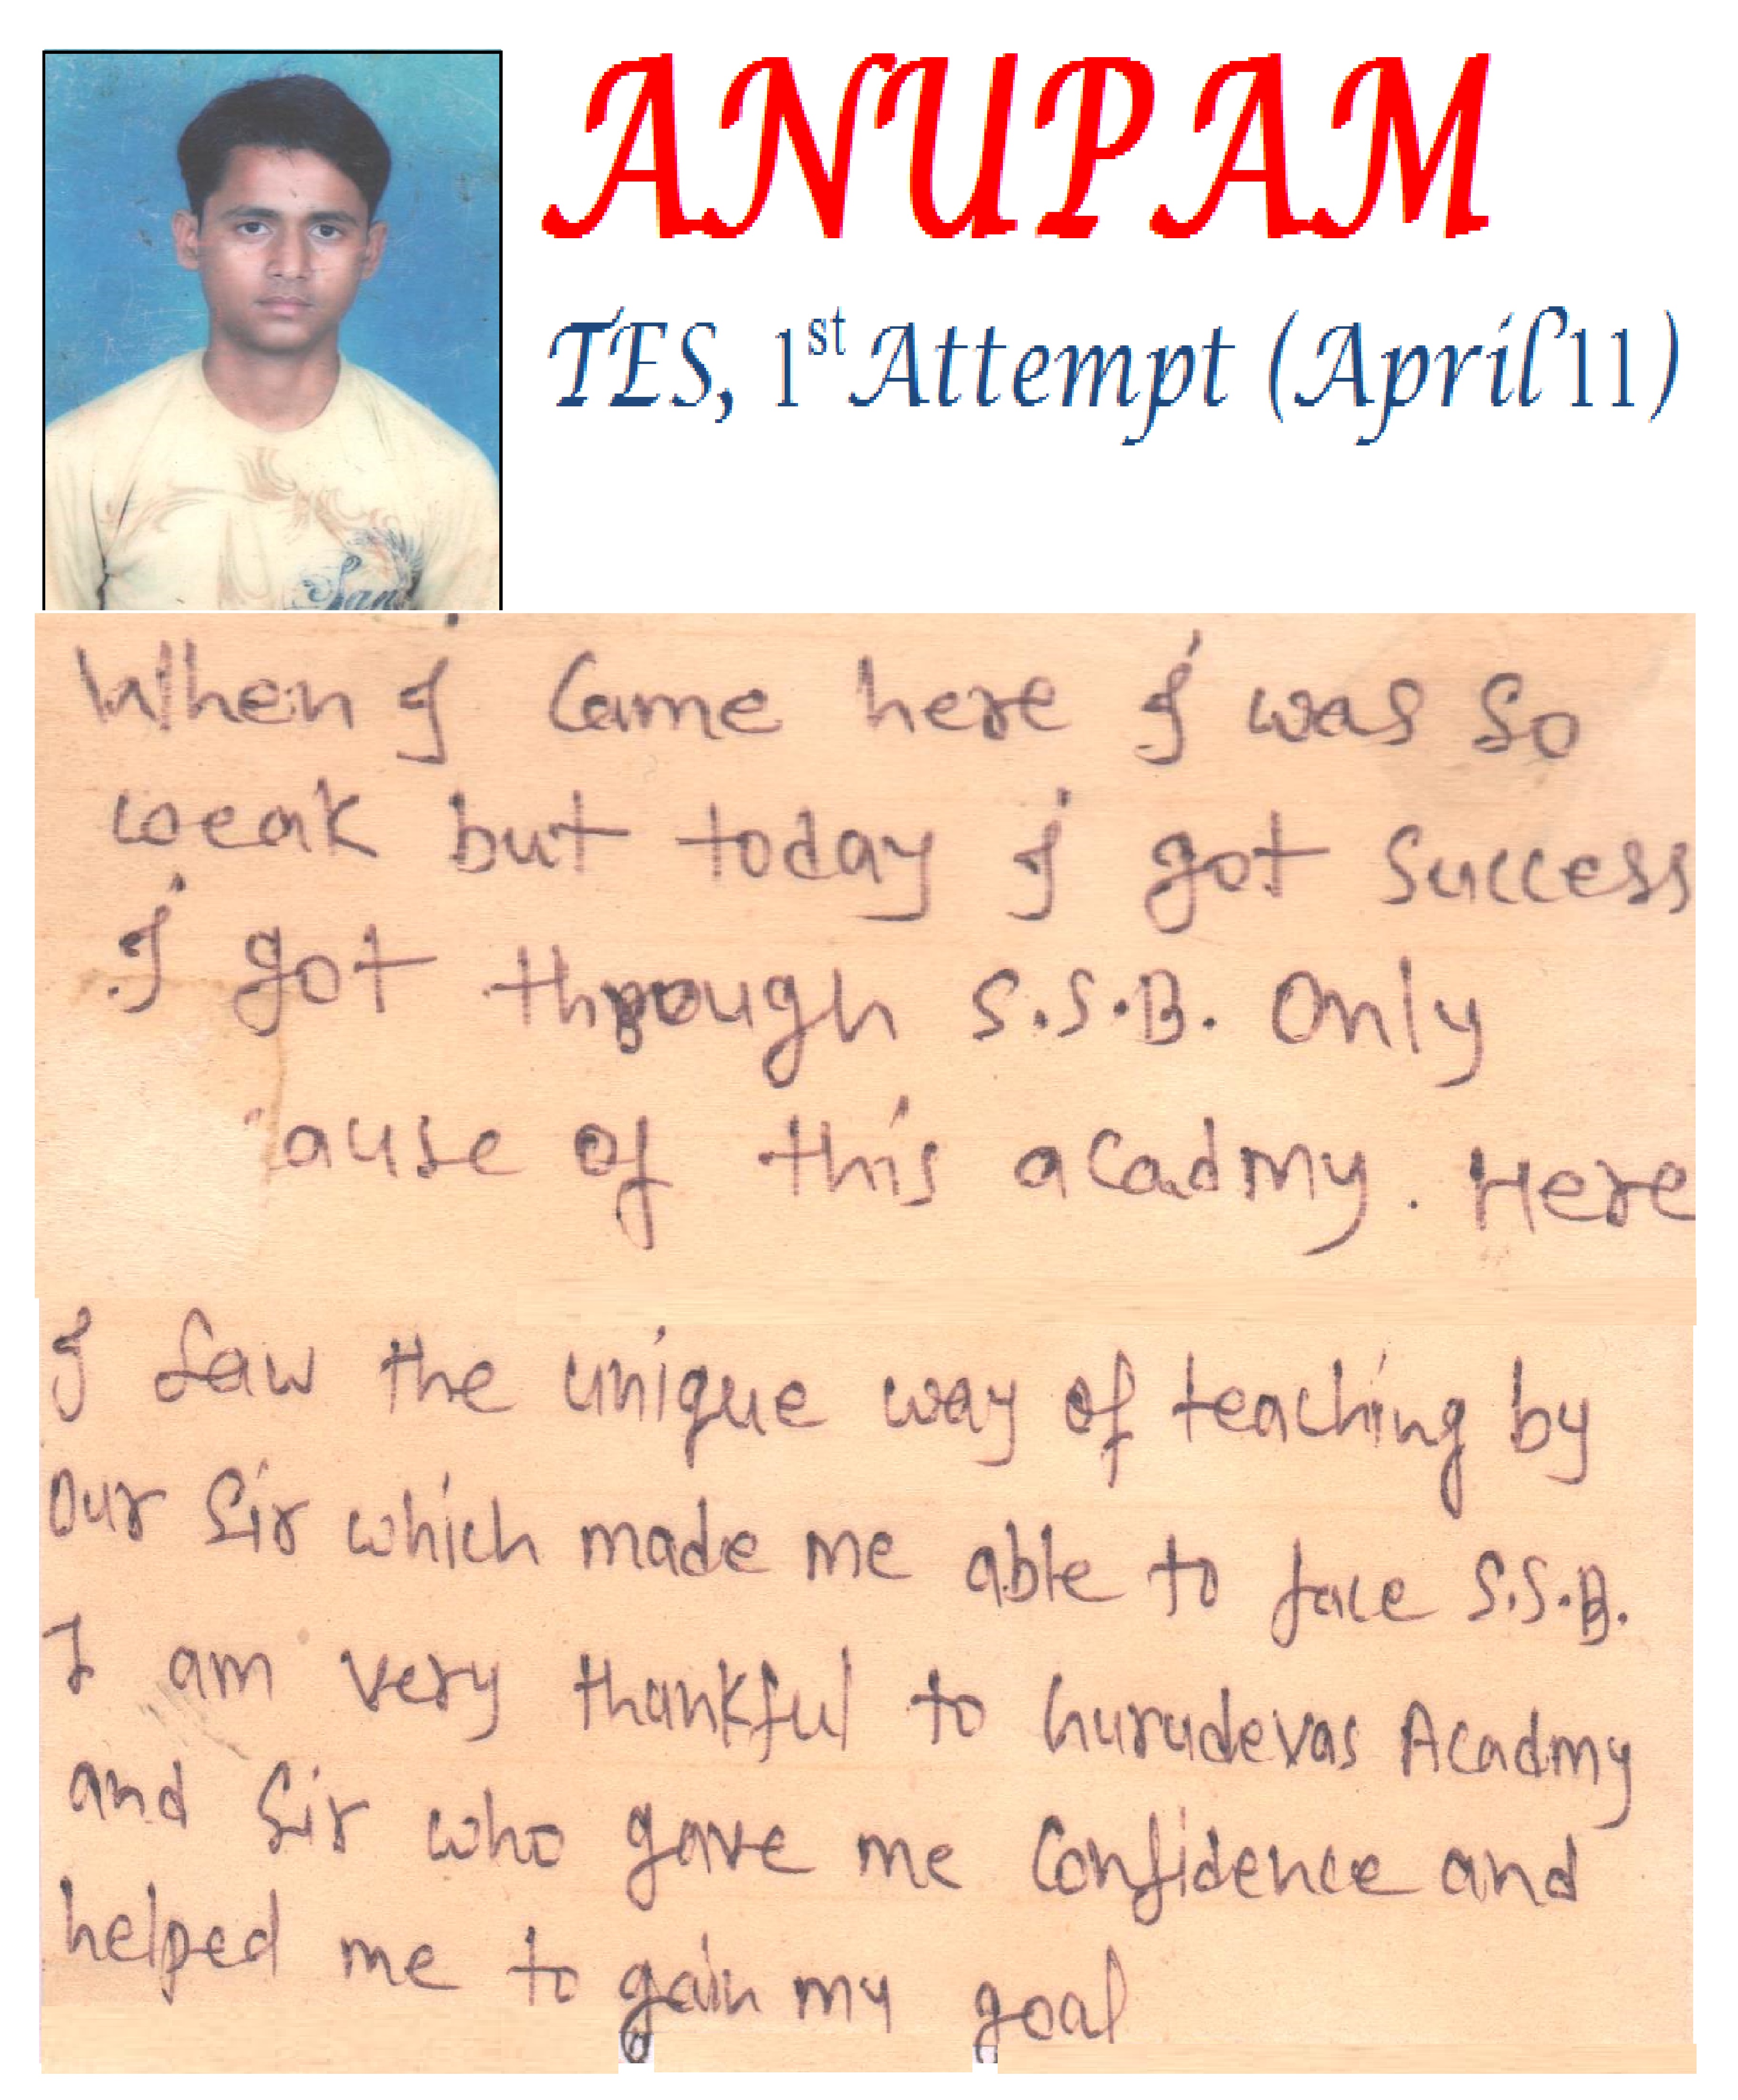 ANUPAM
TES, 1st Attempt (April'11)
When I Came here I was so
weak but today I got success
I got through S.S.B. Only
'ause of this acadmy. Here
I saw the unique way of teaching by
our Sir which made me able to face S.S.B.
I am very thankful to Gurudevas Acadmy
and Sir who gave me Confidence and
helped me to gain my goal